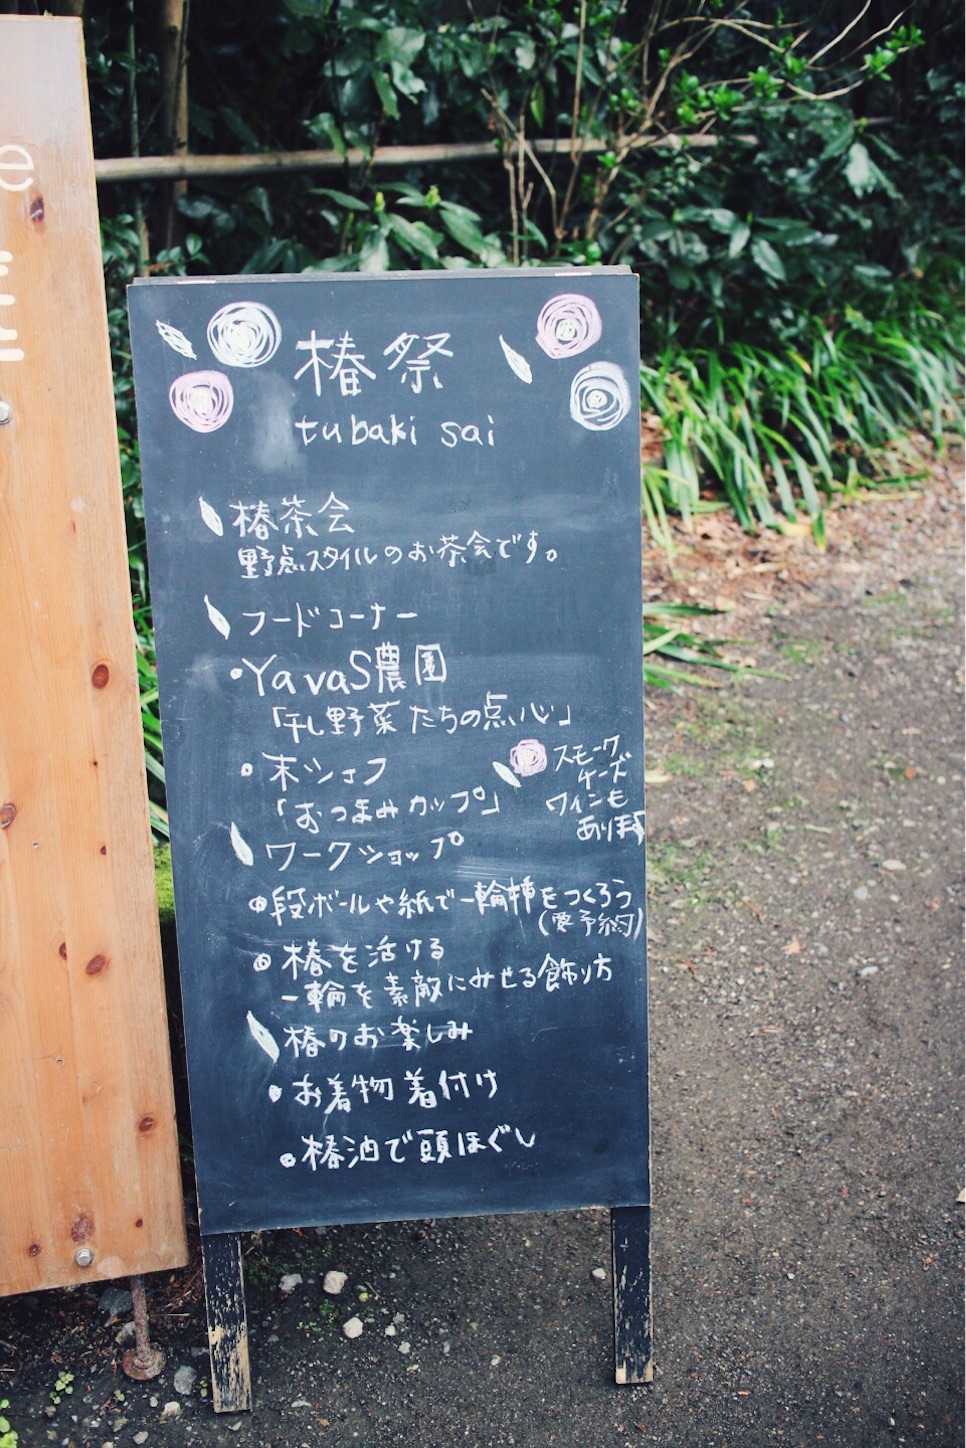 e
椿祭
tubaki sai
椿茶会
野点スタイルのお茶会です。
フードコーナー
・YavaS農園
「干し野菜たちの点心」
・末ショフ
「おつまみカップ」
スモーク
チーズ
ワインも
あります
ワークショップ
・段ボールや紙で一輪挿をつくろう
(要予約)
・椿を活ける
一輪を素敵にみせる飾り方
椿のお楽しみ
・お着物着付け
・椿油で頭ほぐし